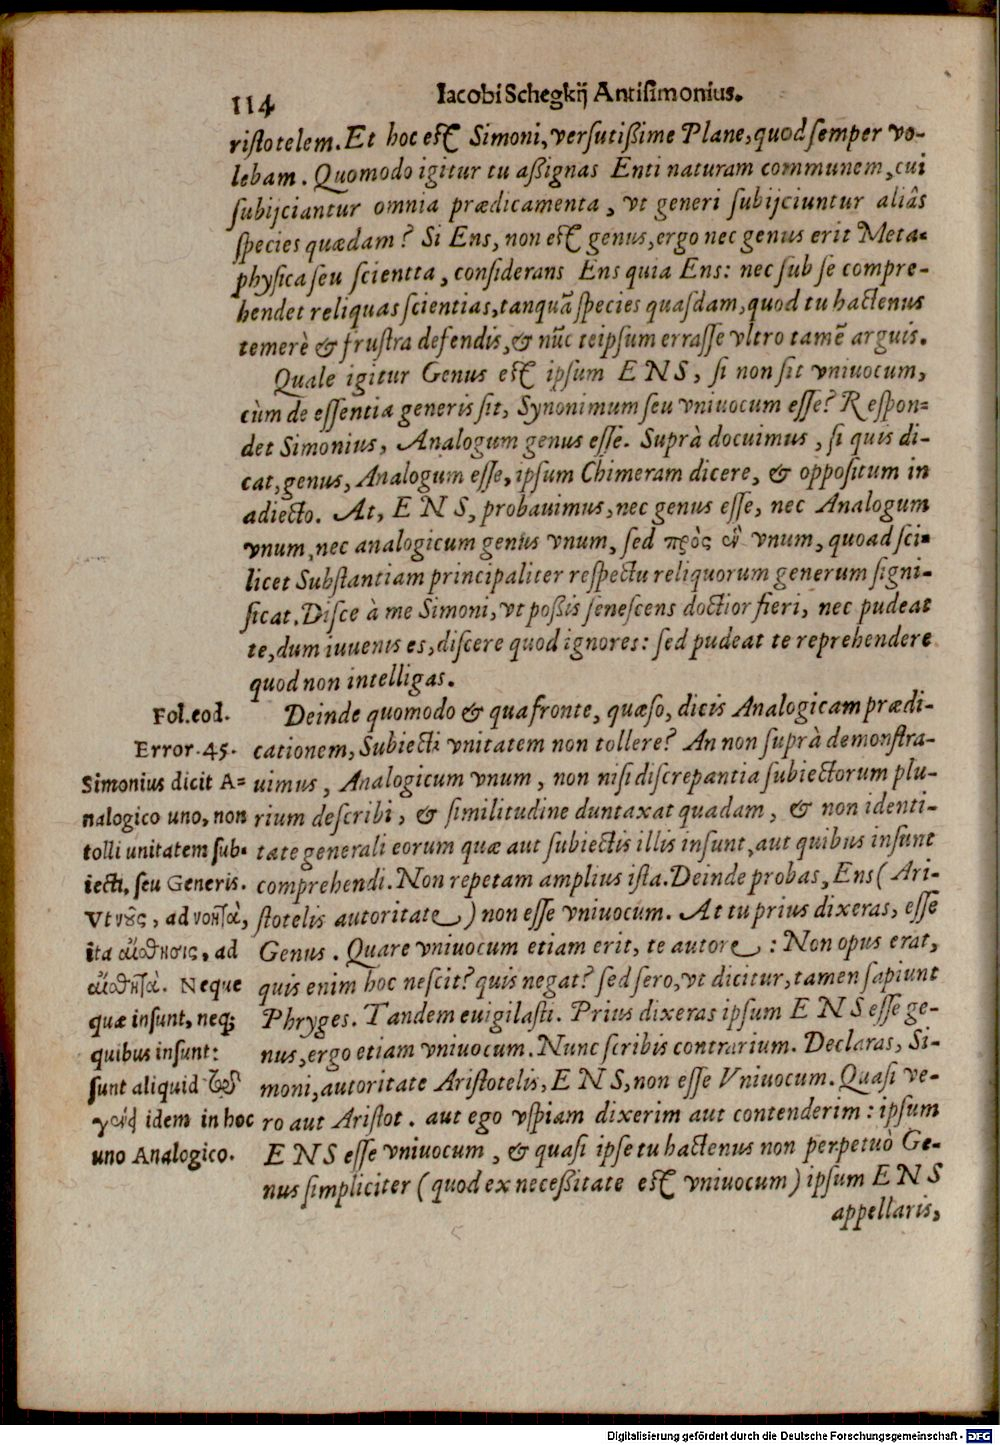 114
Iacobi Schegkij Antisimonius.
ristotelem. Et hoc est Simoni, versutißime Plane, quod semper vo-
lebam. Quomodo igitur tu aßignas Enti naturam communem, cui
subijciantur omnia prædicamenta, vt generi subijciuntur aliâs
species quædam? Si Ens, non est genus, ergo nec genus erit Meta-
physica seu scientta, considerans Ens quia Ens: nec sub se compre-
hendet reliquas scientias, tanquã species quasdam, quod tu hactenus
temerè & frustra defendis, & nũc teipsum errasse vltro tamẽ arguis.
Quale igitur Genus est ipsum ENS, si non sit vniuocum,
cùm de essentia generis sit, Synonimum seu vniuocum esse? Respon-
det Simonius, Analogum genus esse. Suprà docuimus, si quis di-
cat, genus, Analogum esse, ipsum Chimeram dicere, & oppositum in
adiecto. At, ENS, probauimus, nec genus esse, nec Analogum
vnum, nec analogicum genus vnum, sed πρὸς ἓν vnum, quoad sci-
licet Substantiam principaliter respectu reliquorum generum signi-
ficat. Disce à me Simoni, vt poßis senescens doctior fieri, nec pudeat
te, dum iuuenis es, discere quod ignores: sed pudeat te reprehendere
quod non intelligas.
Deinde quomodo & qua fronte, quæso, dicis Analogicam prædi-
cationem, Subiecti vnitatem non tollere? An non suprà demonstra-
uimus, Analogicum vnum, non nisi discrepantia subiectorum plu-
rium describi, & similitudine duntaxat quadam, & non identi-
tate generali eorum quæ aut subiectis illis insunt, aut quibus insunt
comprehendi. Non repetam amplius ista. Deinde probas, Ens (Ari-
stotelis autoritate) non esse vniuocum. At tu prius dixeras, esse
Genus. Quare vniuocum etiam erit, te autore: Non opus erat,
quis enim hoc nescit? quis negat? sed sero, vt dicitur, tamen sapiunt
Phryges. Tandem euigilasti. Prius dixeras ipsum ENS esse ge-
nus, ergo etiam vniuocum. Nunc scribis contrarium. Declaras, Si-
moni, autoritate Aristotelis, ENS, non esse Vniuocum. Quasi ve-
ro aut Aristot. aut ego vspiam dixerim aut contenderim: ipsum
ENS esse vniuocum, & quasi ipse tu hactenus non perpetuò Ge-
nus simpliciter (quod ex neceßitate est vniuocum) ipsum ENS
appellaris,
Fol. eod.
Error. 45.
Simonius dicit A-
nalogico uno, non
tolli unitatem sub-
iecti, seu Generis.
Vt νοῦς, ad νοητὰ,
ita αἴσθησις, ad
αἰσθητὰ. Neque
quæ insunt, neq;
quibus insunt:
sunt aliquid
idem in hoc
uno Analogico.
Digitalisierung gefördert durch die Deutsche Forschungsgemeinschaft - DFG